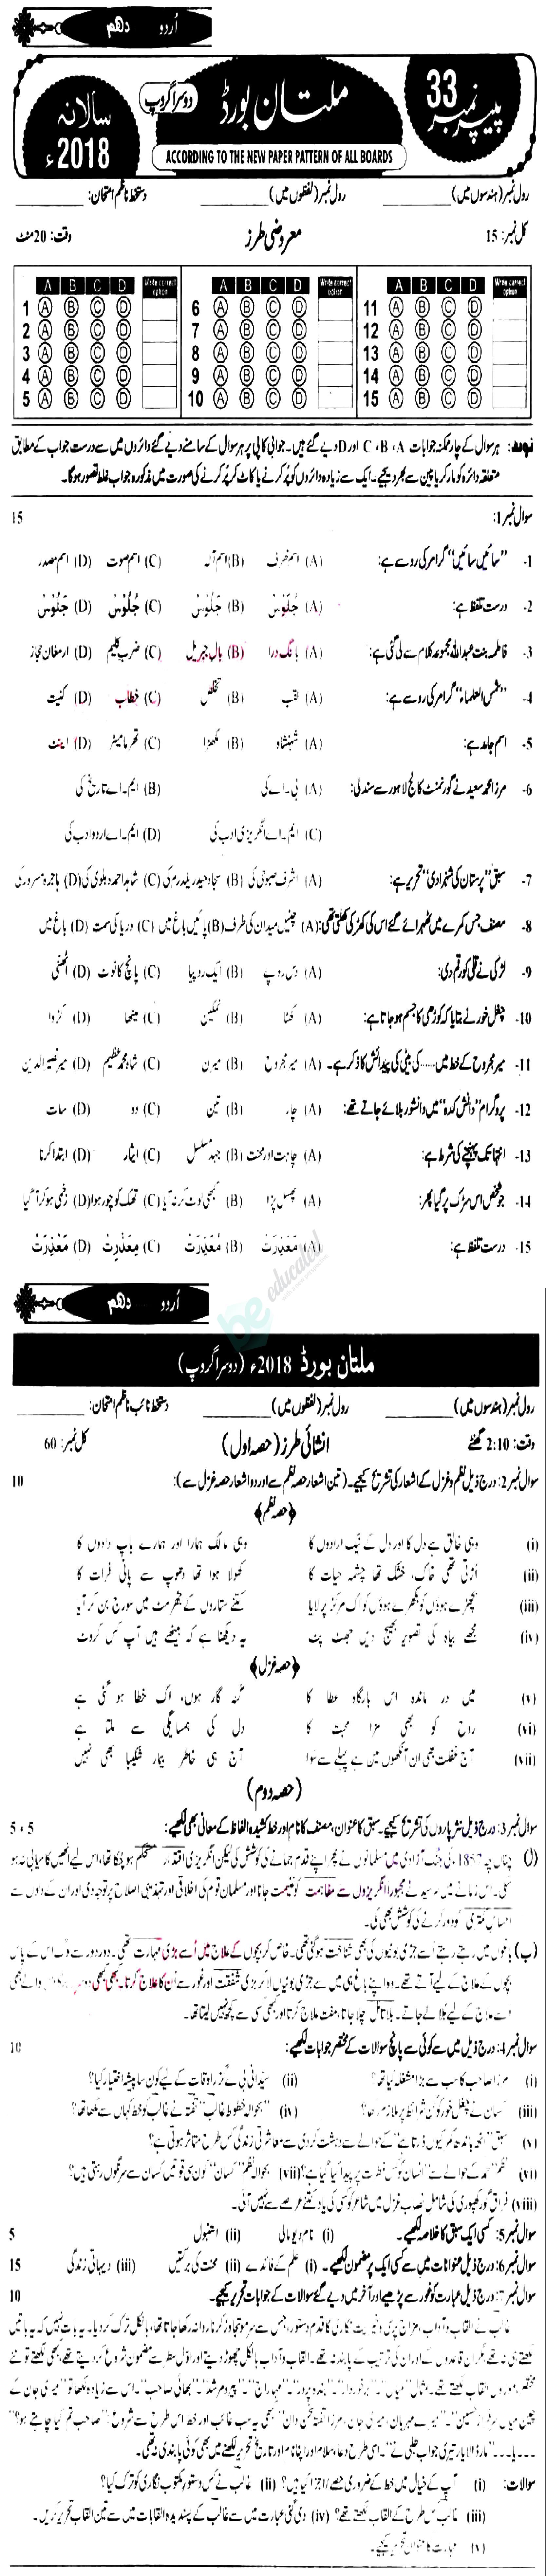 اُردو دہم
پیپر نمبر 33
ملتان بورڈ
دوسرا گروپ
سالانہ 2018ء
ACCORDING TO THE NEW PAPER PATTERN OF ALL BOARDS
رول نمبر (ہندسوں میں) ________ رول نمبر (لفظوں میں) ________ دستخط ناظم امتحان: ________
کل نمبر: 15 معروضی طرز وقت: 20 منٹ
A B C D Write correct option A B C D Write correct option A B C D Write correct option
1 A B C D 6 A B C D 11 A B C D
2 A B C D 7 A B C D 12 A B C D
3 A B C D 8 A B C D 13 A B C D
4 A B C D 9 A B C D 14 A B C D
5 A B C D 10 A B C D 15 A B C D
نوٹ: ہر سوال کے چار ممکنہ جوابات C ، B ، A اور D دیے گئے ہیں۔ جوابی کاپی پر ہر سوال کے سامنے دیے گئے دائروں میں سے درست جواب کے مطابق
متعلقہ دائرہ کو مارکر یا پین سے بھر دیجیے۔ ایک سے زیادہ دائروں کو پُر کرنے یا کاٹ کر پُر کرنے کی صورت میں مذکورہ جواب غلط تصور ہو گا۔
سوال نمبر 1: 15
1- "سائیں سائیں" گرامر کی رو سے ہے: (A) اسم ظرف (B) اسم آلہ (C) اسم صوت (D) اسم مصدر
2- درست تلفظ ہے: (A) جلوس (B) جلوس (C) جلوس (D) جلوس
3- فاطمہ بنت عبداللہ مجموعہ کلام سے لی گئی ہے: (A) بانگ درا (B) بال جبریل (C) ضرب کلیم (D) ارمغان حجاز
4- "شمس العلماء" گرامر کی رو سے ہے: (A) لقب (B) تخلص (C) خطاب (D) کنیت
5- اسم جامد ہے: (A) شہنشاہ (B) مکھڑا (C) تھرمامیٹر (D) اینٹ
6- مرزا محمد سعید نے گورنمنٹ کالج لاہور سے سند لی: (A) بی۔اے کی (B) ایم۔اے تاریخ کی
(C) ایم۔اے انگریزی ادب کی (D) ایم۔اے اردو ادب کی
7- سبق "پرستان کی شہزادی" تحریر ہے: (A) اشرف صبوحی کی (B) سجاد حیدر یلدرم کی (C) شاہد احمد دہلوی کی (D) ہاجرہ مسرور کی
8- مصنف جس کمرے میں ٹھہرائے گئے اس کی کھڑکی کھلتی تھی: (A) چٹیل میدان کی طرف (B) پائیں باغ میں (C) دریا کی سمت (D) باغ میں
9- لڑکی نے قلی کو رقم دی: (A) دس روپے (B) ایک روپیا (C) پانچ کا نوٹ (D) اٹھنی
10- چغل خور نے بتایا کہ کوڑھی کا جسم ہو جاتا ہے: (A) کھٹا (B) نمکین (C) میٹھا (D) کڑوا
11- میر مجروح کے خط میں ...... کی بیٹی کی پیدائش کا ذکر ہے۔ (A) میر مجروح (B) میرن (C) شاہ محمد عظیم (D) میر نصیر الدین
12- پروگرام "دانش کدہ" میں دانشور بلائے جاتے تھے: (A) چار (B) تین (C) دو (D) سات
13- انتہا تک پہنچنے کی شرط ہے: (A) چاہت اور محنت (B) جہد مسلسل (C) ایثار (D) ابتدا کرنا
14- جو شخص اس سڑک پر گیا پھر: (A) پھسل پڑا (B) کبھی لوٹ کر نہ آیا (C) تھک کر چور ہوا (D) زخمی ہو کر آ گیا
15- درست تلفظ ہے: (A) معذرت (B) معذرت (C) معذرت (D) معذرت
be educated
اُردو دہم
ملتان بورڈ 2018ء (دوسرا گروپ)
رول نمبر (ہندسوں میں) ________ رول نمبر (لفظوں میں) ________ دستخط نائب ناظم امتحان: ________
وقت: 2:10 گھنٹے انشائی طرز (حصہ اول) کل نمبر: 60
سوال نمبر 2: درج ذیل نظم و غزل کے اشعار کی تشریح کیجیے۔ (تین اشعار حصہ نظم سے اور دو اشعار حصہ غزل سے): 10
﴿حصہ نظم﴾
(i) وہی خالق ہے دل کا اور دل کے نیک ارادوں کا وہی مالک ہمارا اور ہمارے باپ دادوں کا
(ii) اُڑتی تھی خاک، خشک تھا چشمہ حیات کا کھولا ہوا تھا دھوپ سے پانی فرات کا
(iii) بچھڑے ہوؤں کو بکھرے ہوؤں کو اک مرکز پر لایا کتنے ستاروں کے جھرمٹ میں سورج بن کر آیا
(iv) مجھے بیاہ کی تصویر بھیج دیں جھٹ پٹ یہ دیکھنا ہے کہ بیٹھے ہیں آپ کس کروٹ
﴿حصہ غزل﴾
(v) میں در ماندہ اس بارگاہ عطا کا گنہ گار ہوں، اک خطا ہو گئی ہے
(vi) روح کو بھی مزا محبت کا دل کی ہمسایگی سے ملتا ہے
(vii) آج غفلت بھی ان آنکھوں میں ہے پہلے سے سوا آج ہی خاطر بیمار شکیبا بھی نہیں
(حصہ دوم)
سوال نمبر 3: درج ذیل نثر پاروں کی تشریح کیجیے۔ سبق کا عنوان، مصنف کا نام اور خط کشیدہ الفاظ کے معانی بھی لکھیے: 5 ، 5
(الف) چناں چہ 1857ء کی جنگ آزادی میں مسلمانوں نے پھر اپنے قدم جمانے کی کوشش کی لیکن انگریزی اقتدار مستحکم ہو چکا تھا، اس لیے انھیں کامیابی نہ ہو
سکی۔ اس زمانے میں سرسید نے مجبوراً انگریزوں سے مفاہمت کو غنیمت جانا اور مسلمان قوم کی اخلاقی اور تہذیبی اصلاح پر توجہ دی اور ان کے دلوں سے
احساس کمتری کو دور کرنے کی کوشش بھی کی۔
(ب) باغوں میں رہتے رہتے اُسے جڑی بوٹیوں کی بھی شناخت ہو گئی تھی۔ خاص کر بچوں کے علاج میں اُسے بڑی مہارت تھی۔ دور دور سے لوگ اس کے پاس
بچوں کے علاج کے لیے آتے تھے۔ وہ اپنے باغ ہی میں سے جڑی بوٹیاں لا کر بڑی شفقت اور غور سے اُن کا علاج کرتا۔ کبھی کبھی دوسرے گاؤں والے بھی
اسے علاج کے لیے بلا لے جاتے۔ بلا تامل چلا جاتا، مفت علاج کرتا اور کبھی کسی سے کچھ نہیں لیتا تھا۔
سوال نمبر 4: درج ذیل میں سے کوئی سے پانچ سوالات کے مختصر جوابات لکھیے: 10
(i) مرزا صاحب کا سب سے بڑا مشغلہ کیا تھا؟ (ii) سیدانی بی نے گزر اوقات کے لیے کون سا پیشہ اختیار کیا؟
(iii) کسان نے چغل خور کو کن شرائط پر ملازم رکھا؟ (iv) "بحوالہ خطوط غالب" تفتہ نے غالب کو خط کہاں سے لکھا تھا؟
(v) سبق "پنجہ باندھ کر کیوں ڈرتا ہے" کے حوالے سے دہشت گردی سے معاشرتی زندگی کس طرح متاثر ہوتی ہے؟
(vi) نظم "حمد کے حوالے سے" انسان کو کس فطرت پر پیدا کیا گیا ہے؟ (vii) بحوالہ نظم "کسان" کون سی قوتیں کسان سے سرنگوں رہتی ہیں؟
(viii) فراق گورکھپوری کی شامل نصاب غزل میں شاعر کو کسی کی یاد کتنے عرصے سے نہیں آئی۔
سوال نمبر 5: کسی ایک سبق کا خلاصہ لکھیے۔ (i) نام دیو مالی (ii) استنبول 5
سوال نمبر 6: درج ذیل عنوانات میں سے کسی ایک پر مضمون لکھیے۔ (i) علم کے فائدے (ii) محنت کی برکتیں (iii) دیہاتی زندگی 15
سوال نمبر 7: درج ذیل عبارت کو غور سے پڑھیے اور آخر میں دیے گئے سوالات کے جوابات تحریر کیجیے۔ 10
غالب نے القاب و آداب، مزاج پری و خیریت نگاری کا قدم دستور، جس سے سرمو تجاوز کرنا روا نہ رکھا جاتا تھا، بالکل ترک کر دیا۔ یہ بات نہیں کہ یہ باتیں
لکھتے ہی نہ تھے مگر ان قاعدوں کے اور ان کی ترتیب کے پابند نہ تھے۔ القاب و آداب بالکل چھوڑ دیتے اور اول سطر سے مضمون شروع کر دیتے تھے، کبھی لکھتے تو نئے
مختصر القاب لکھتے تھے۔ مثلاً "میاں"، "برخوردار"، "بندہ پرور"، "مہاراج"، "پیر و مرشد"، "بھائی صاحب"۔ اس سے زیادہ لکھا تو "میری جان کے
چین میاں سرفراز حسین"، "میرے مہربان، میری جان، مرزا تفتہ سخن دان" کبھی یہ سب غائب اور خط اس طرح سے شروع: "صاحب تم کیا چاہتے ہو؟"
...یا... "مار ڈالا یار تیری جواب طلبی نے"۔ اسی طرح دعا، سلام اور اپنا نام اور تاریخ تحریر لکھنے میں بھی کوئی پابندی نہ تھی۔
سوالات: (i) آپ کے خیال میں خط کے ضروری حصے/اجزا کیا ہیں؟ (ii) غالب نے کس دستور مکتوب نگاری کو ترک کیا؟
(iii) غالب کس طرح کے القاب لکھتے تھے؟ (iv) دی گئی عبارت میں سے غالب کے پسندیدہ القابات میں سے تین القاب تحریر کریں۔
(v) عبارت کا عنوان تحریر کیجیے۔